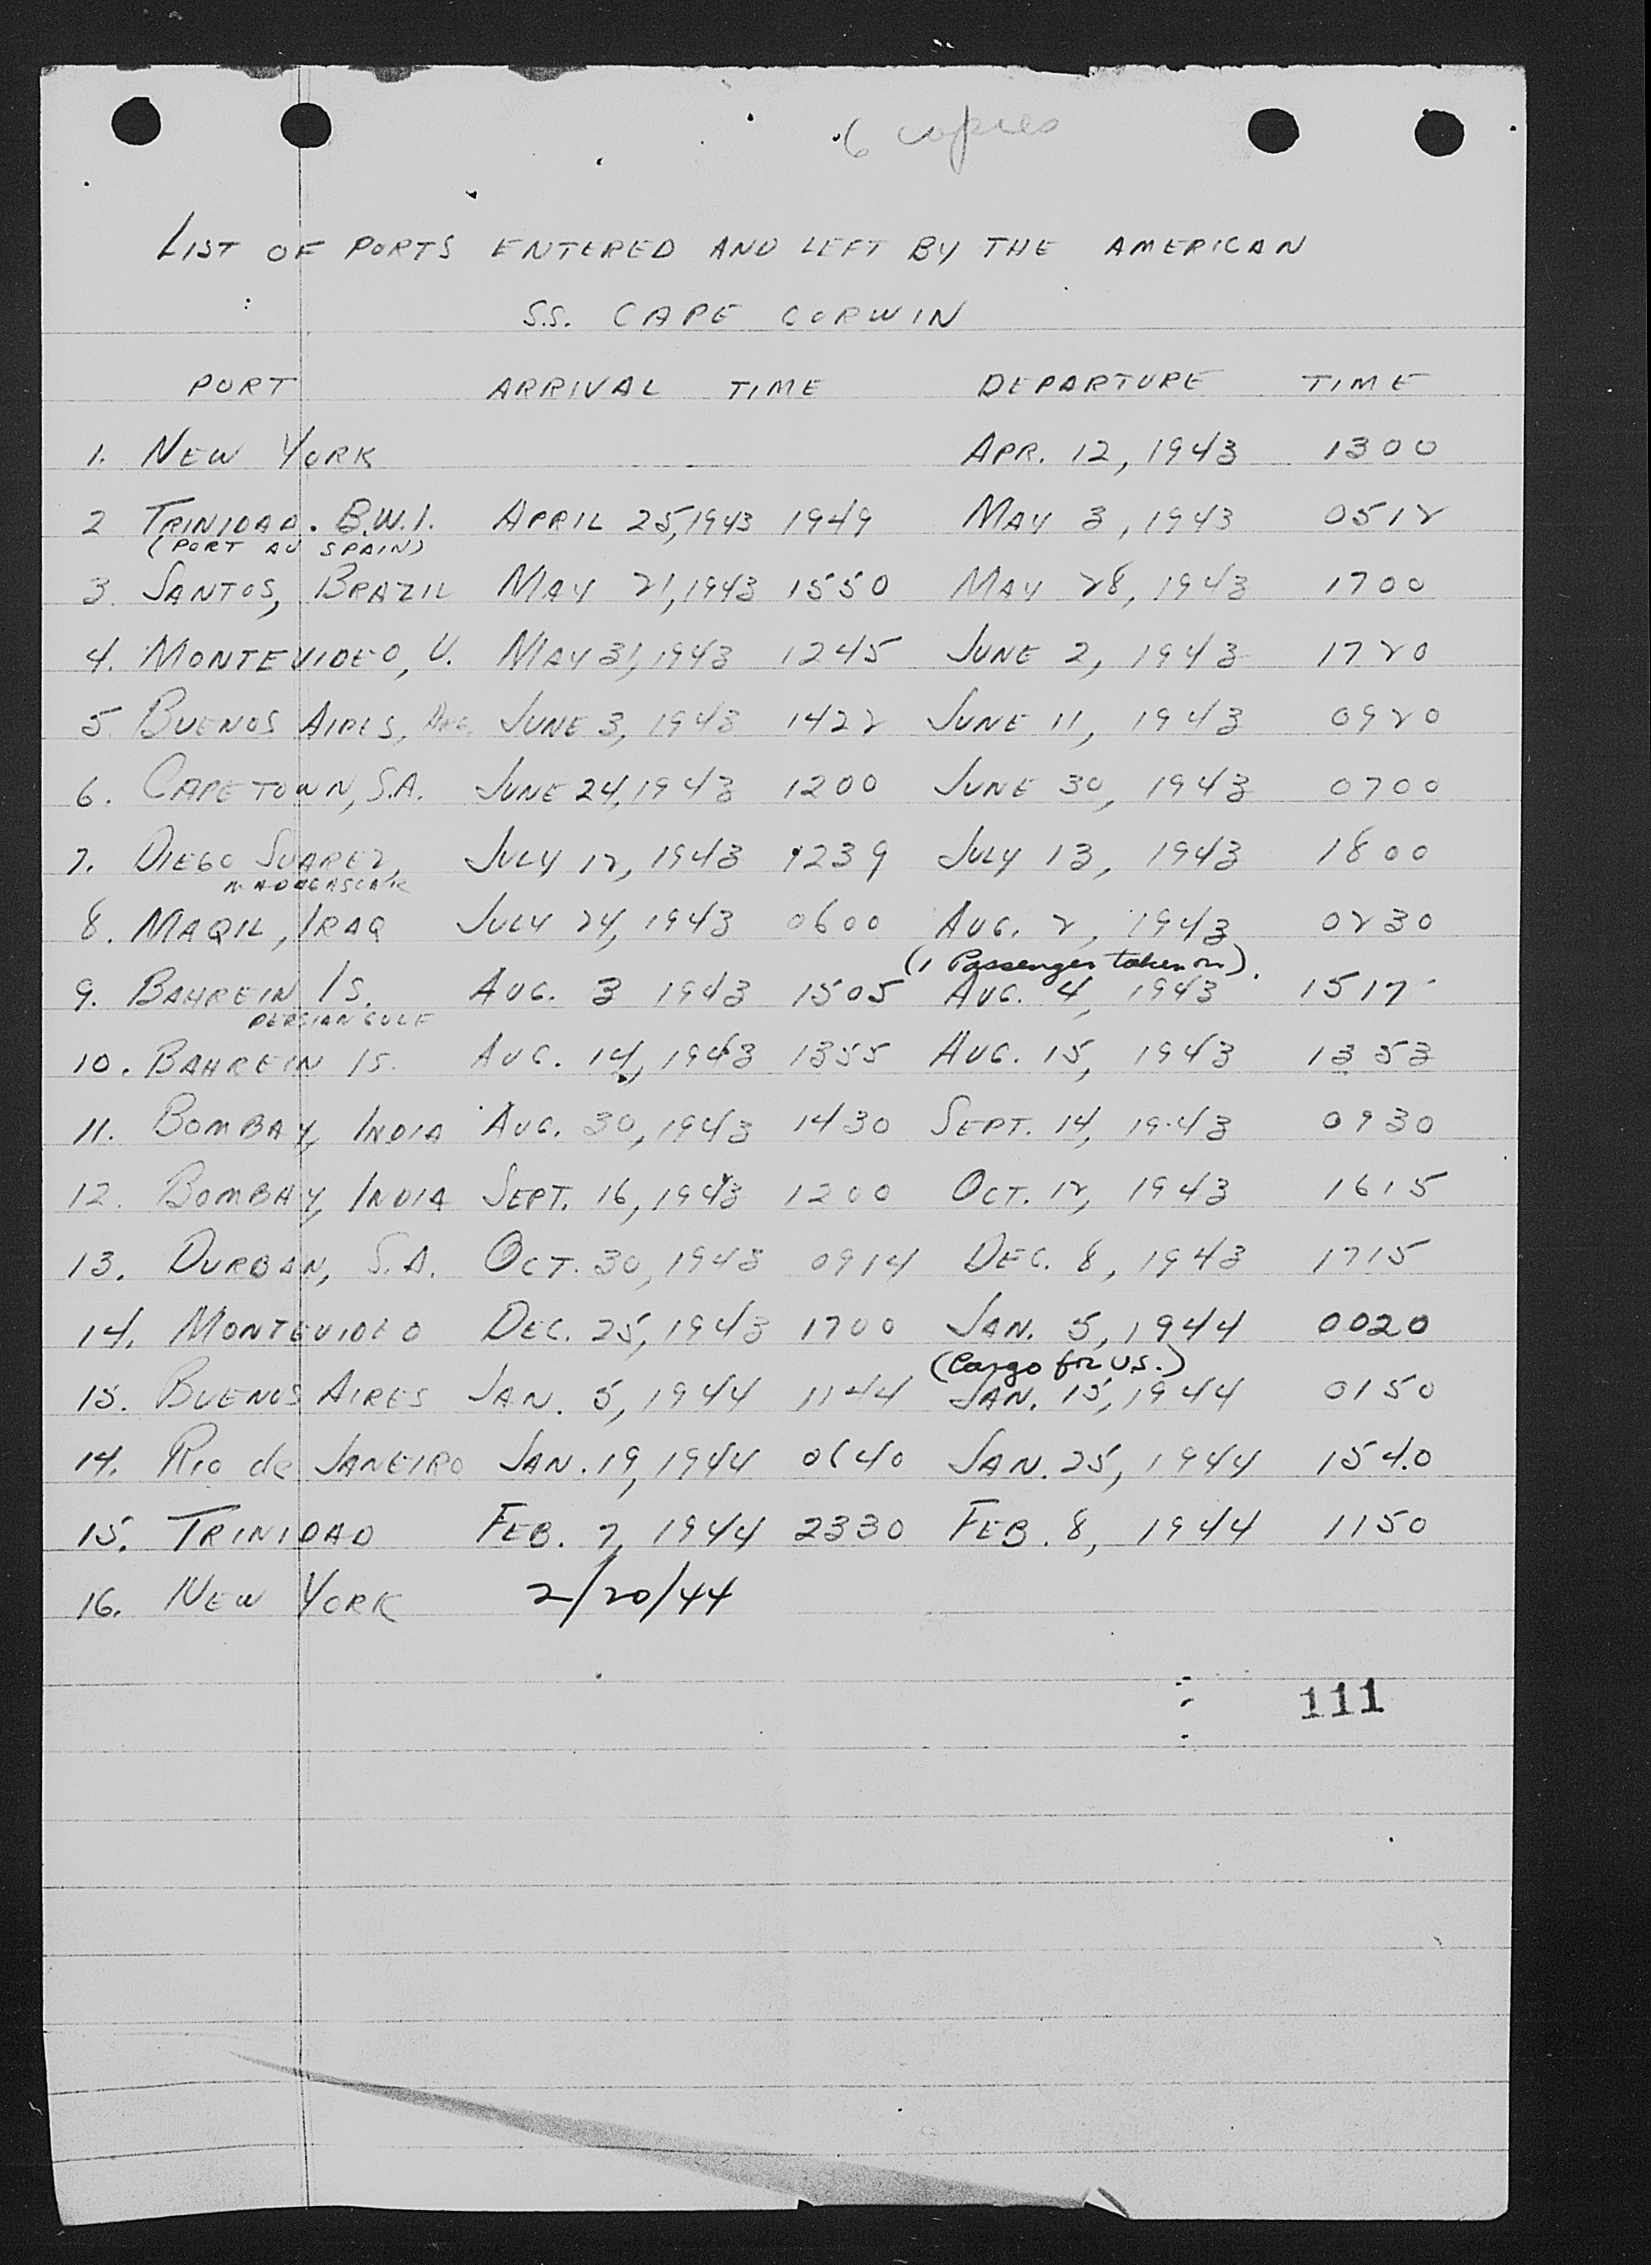 6 copies
LIST OF PORTS ENTERED AND LEFT BY THE AMERICAN
S.S. CAPE CORWIN
PORT ARRIVAL TIME DEPARTURE TIME
1. NEW YORK APR. 12, 1943 1300
2 TRINIDAD. B.W.I. APRIL 25, 1943 1949 MAY 3, 1943 0512
(PORT AU SPAIN)
3. SANTOS, BRAZIL MAY 21, 1943 1550 MAY 28, 1943 1700
4. MONTEVIDEO, U. MAY 31, 1943 1245 JUNE 2, 1943 1720
5. BUENOS AIRES, ARG. JUNE 3, 1943 1422 JUNE 11, 1943 0920
6. CAPETOWN, S.A. JUNE 24, 1943 1200 JUNE 30, 1943 0700
7. DIEGO SUAREZ, JULY 12, 1943 1239 JULY 13, 1943 1800
MADAGASCAR
8. MAQIL, IRAQ JULY 24, 1943 0600 AUG. 2, 1943 0230
(1 Passenger taken on).
9. BAHREIN IS. AUG. 3 1943 1505 AUG. 4, 1943 1517
PERSIAN GULF
10. BAHREIN IS. AUG. 14, 1943 1355 AUG. 15, 1943 1353
11. BOMBAY, INDIA AUG. 30, 1943 1430 SEPT. 14, 1943 0930
12. BOMBAY, INDIA SEPT. 16, 1943 1200 OCT. 12, 1943 1615
13. DURBAN, S.A. OCT. 30, 1943 0914 DEC. 8, 1943 1715
14. MONTEVIDEO DEC. 25, 1943 1700 JAN. 5, 1944 0020
(Cargo for U.S.)
15. BUENOS AIRES JAN. 5, 1944 1144 JAN. 15, 1944 0150
14. RIO de JANEIRO JAN. 19, 1944 0640 JAN. 25, 1944 1540
15. TRINIDAD FEB. 7, 1944 2330 FEB. 8, 1944 1150
16. NEW YORK 2/20/44
111